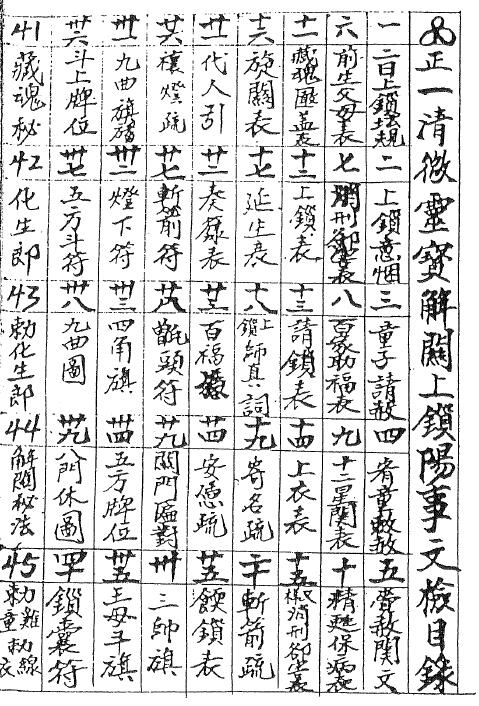 正一清微靈寶解關上鎖陽事文檢目錄
一 二日上鎖坛規 二 上鎖意悃 三 童子請赦 四 宥童赦 五 赦関文
六 前生父母表 七 消刑卻表 八 百家助福表 九 十二星関表 十 精保病表
十一 藏魂匣蓋表 十二 上鎖表 十三 請鎖表 十四 上衣表 十五 消刑卻表
十六 旋關表 十七 延生表 十八 上鎖師真詞 十九 寄名疏 二十 斬箭疏
廿一 代人引 廿二 奏籙表 廿三 百福 廿四 安疏 廿五 鎖表
廿六 禳燈疏 廿七 斬箭符 廿八 頭符 廿九 關門匾對 卅 三帥旗
卅一 九曲旗 卅二 燈下符 卅三 四角旗 卅四 五方牌位 卅五 王母斗旗
卅六 斗上牌位 卅七 五方斗符 卅八 九曲圖 卅九 八門休圖 四十 鎖囊符
41 藏魂秘 42 化生郎 43 勅化生郎 44 解関秘法 45 勅雞勅線童衣